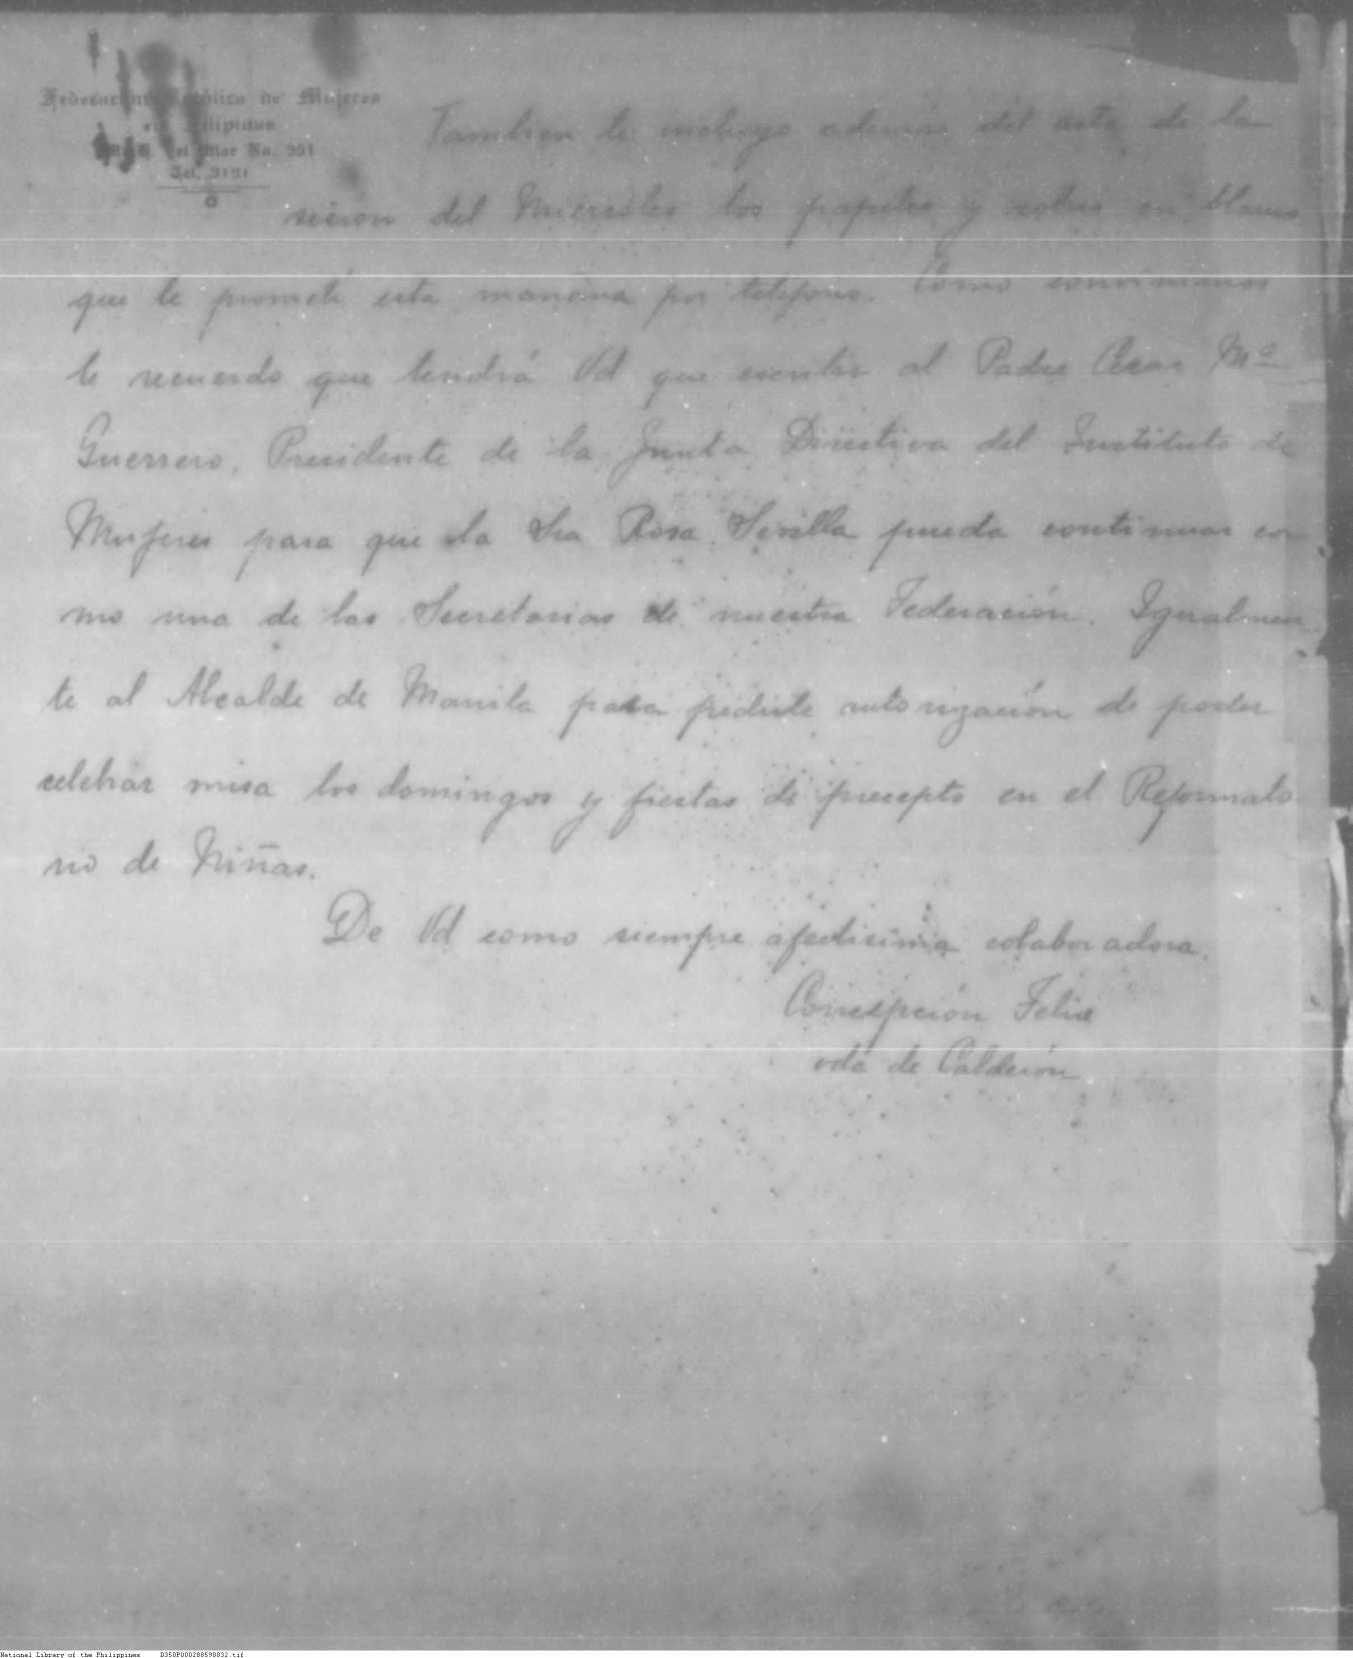 Federación Católica de Mujeres
en Filipinas
del Mar No. 991
Tel. 3191
Tambien le incluyo además del acta de la
sesion del Miércoles los papeles y sobres en blanco
que le prometí esta mañana por teléfono. Como convinimos
le recuerdo que tendrá Vd que escribir al Padre Cesar Mª
Guerrero, Presidente de la Junta Directiva del Instituto de
Mujeres para que la Sra Rosa Sevilla pueda continuar co-
mo una de las Secretarias de nuestra Federación. Igualmen-
te al Alcalde de Manila para pedirle autorización de poder
celebrar misa los domingos y fiestas de precepto en el Reformato-
rio de Niñas.
De Vd como siempre afectisima colaboradora.
Concepción Felix
vda de Calderón
National Library of the Philippines D350P000288598832.tif